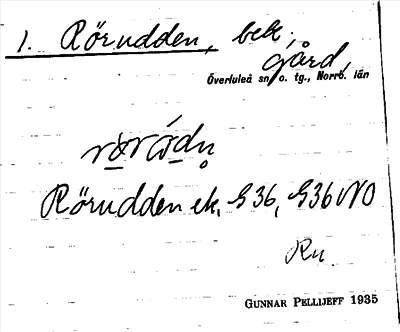 1. Rörudden, bek.
gård,
Överluleå sn o. tg., Norrb. län
Rörudden ek. G 36, G36 NO
Rn
GUNNAR PELLIJEFF 1935